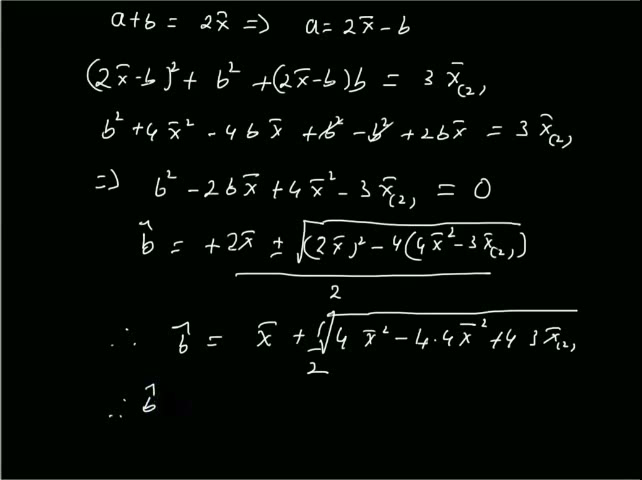 a+b = 2x̄ => a = 2x̄ - b
(2x̄-b)² + b² + (2x̄-b)b = 3 x̄₍₂₎
b² + 4x̄² - 4bx̄ + b² - b² + 2bx̄ = 3 x̄₍₂₎
=> b² - 2bx̄ + 4x̄² - 3x̄₍₂₎ = 0
b̂ = +2x̄ ± √((2x̄)² - 4(4x̄² - 3x̄₍₂₎)) / 2
∴ b̂ = x̄ + 1/2 √(4 x̄² - 4·4x̄² + 4 3 x̄₍₂₎)
∴ b̂